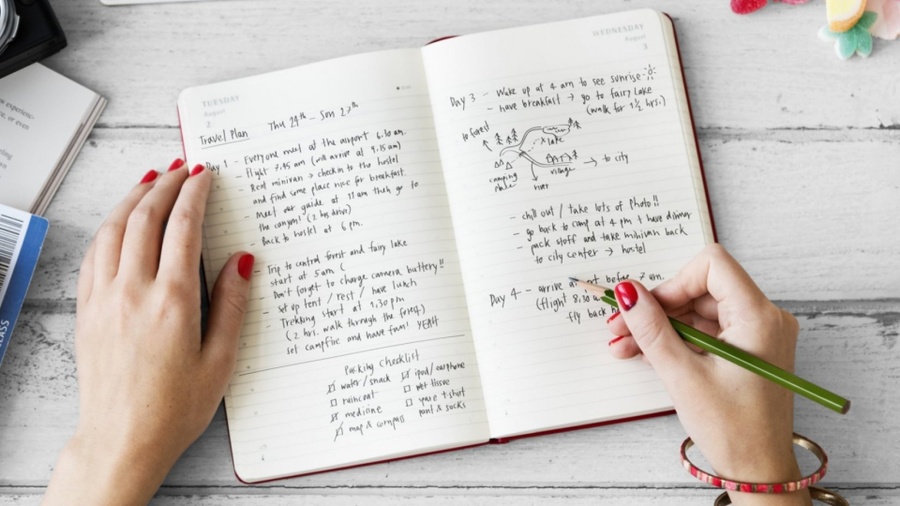 experience-
or even
SSKY
TUESDAY
August
2
Travel Plan Thu 24th - Sun 27th
Day 1 - Everyone meet at the airport 6:30 am.
- Flight 7:45 am (will arrive at 9:15 am)
- Rent minivan → checkin to the hostel
and find some place nice for breakfast.
- Meet our guide at 11 am then go to
the canyon! (2 hrs drive)
- Back to hostel at 6 pm.
- Trip to central forest and fairy lake
start at 5 am (
- Don't forget to charge camera battery!!
- Set up tent / rest / have lunch
- Trekking start at 1:30 pm
(2 hrs. walk through the forest)
- set campfire and have fun! YEAH
Packing Checklist
water / snack
raincoat
medicine
map & compass
ipod / earphone
wet tissue
spare t-shirt
pant & socks
WEDNESDAY
August
3
Day 3 - Wake up at 4 am to see sunrise
- have breakfast → go to fairy lake
(walk for 1 1/2 hrs.)
to forest
lake
camping
place
river
village
→ to city
- chill out / take lots of photo!!
- go back to camp at 4 pm & have dinner
- pack stuff and take minivan back
to city center → hostel
Day 4 - arrive before 7 am.
(flight 8:30
fly back